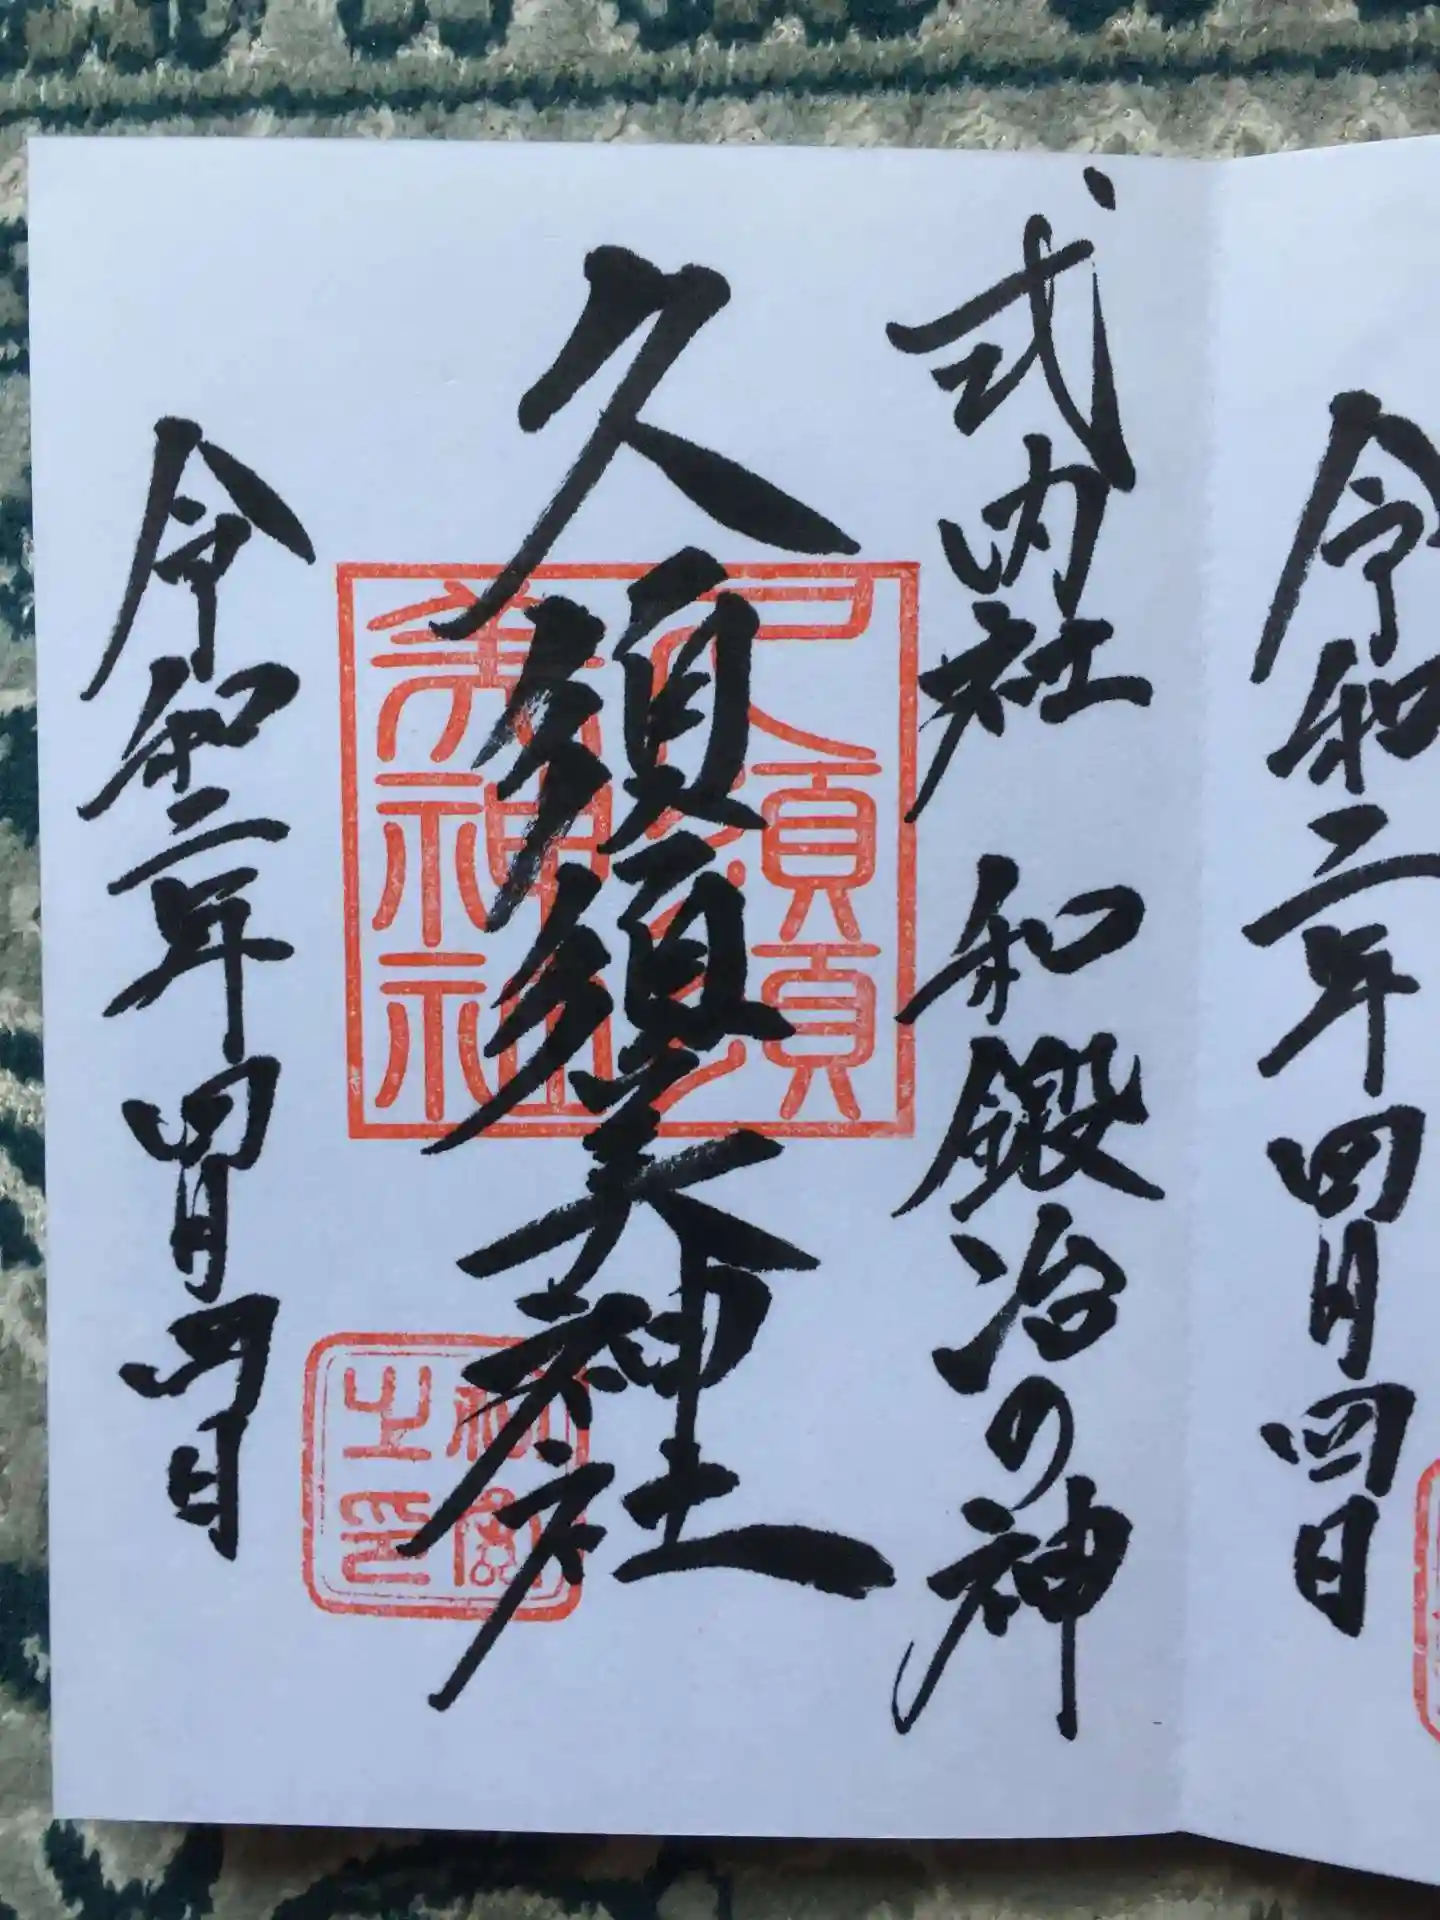 令和二年四月四日
式内社 和鍛冶の神
久須須美神社
令和二年四月四日
久須須
美神社
之印